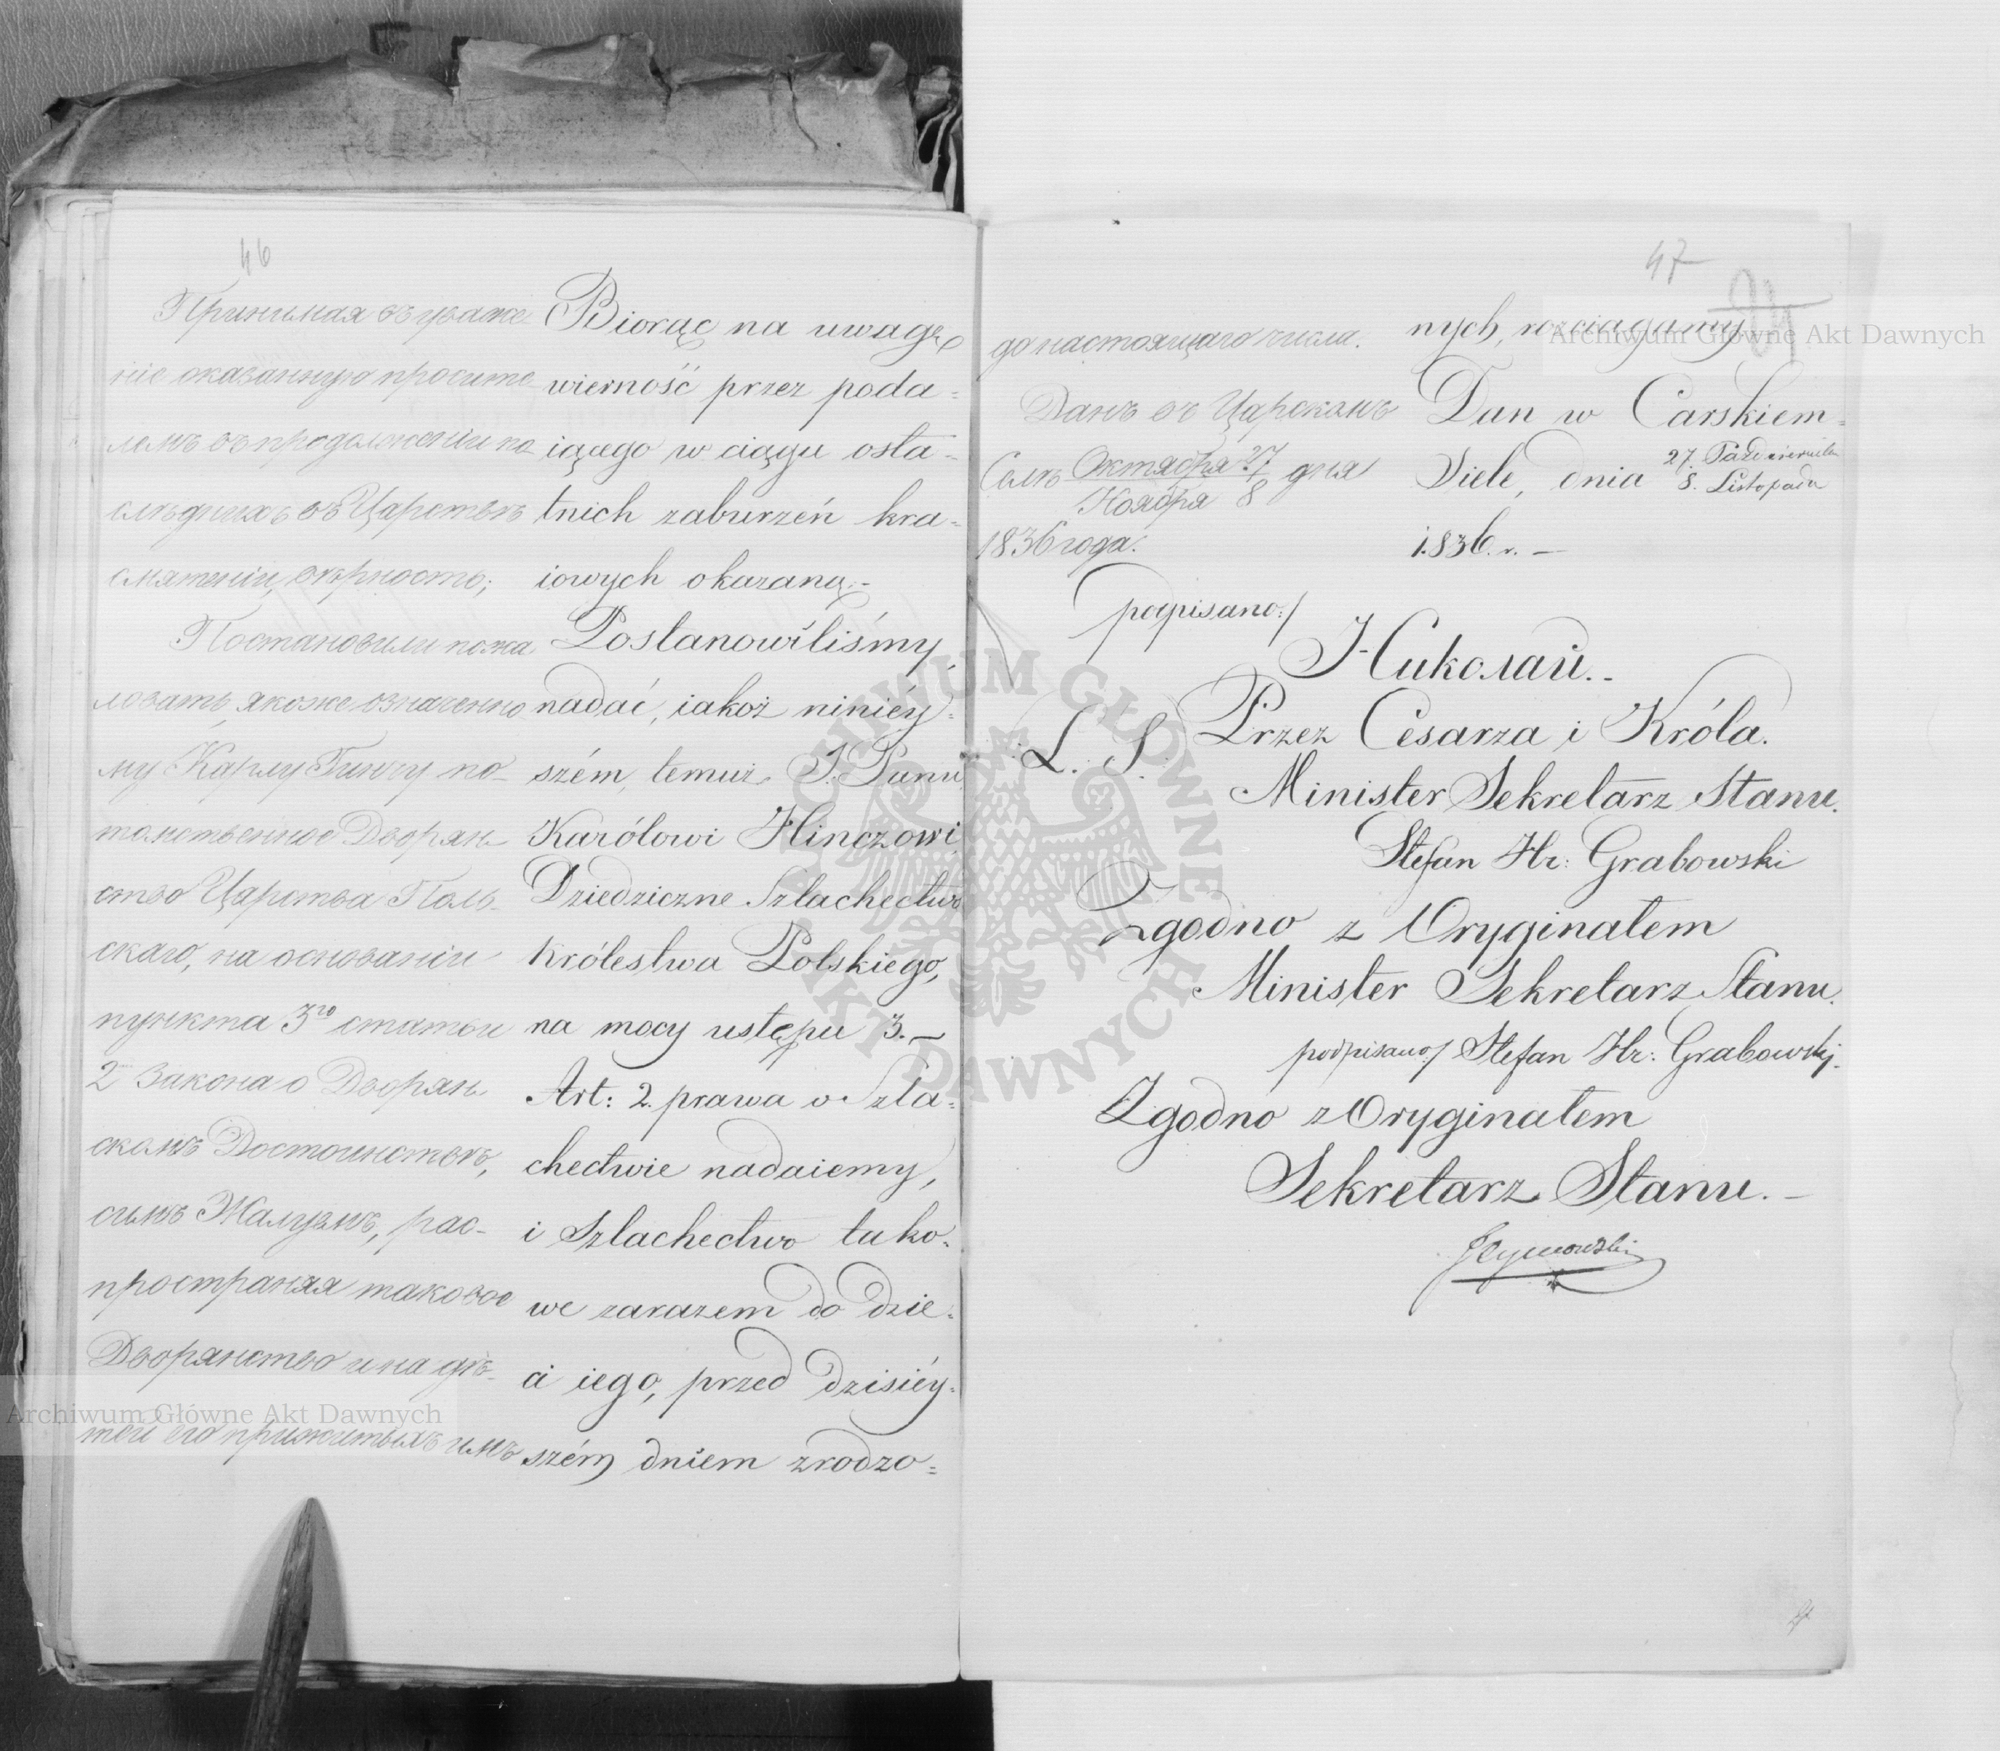 46
Принимая въ уваже
ніе оказанную просите
лемъ въ продолженіи по
слѣднихъ въ Царствѣ
смятеній, вѣрность;
Постановили пожа
ловать, якоже означенно
му Карлу Гинчу по-
томственное Дворян-
ство Царства Поль-
скаго, на основаніи
пункта 3го статьи
2 Закона о Дворян
скомъ Достоинствѣ,
симъ Жалуемъ, рас-
пространяя таковое
Дворянство и на дѣ-
тей его прижитыхъ имъ
Biorąc na uwagę
wierność przez poda=
iącego w ciągu osta=
tnich zaburzeń kra=
iowych okazaną.-
Postanowiliśmy
nadać, iakoż niniéy=
szém, temuż J. Panu
Karólowi Hinczowi
Dziedziczne Szlachectwo
Królestwa Polskiego,
na mocy ustępu 3.-
Art: 2. prawa o Szla=
chectwie nadaiemy,
i Szlachectwo tako=
we zarazem do dzie=
ci iego, przed dzisiéy=
szém dniem zrodzo=
47
до настоящаго числа.
Данъ въ Царскомъ
Селѣ Октября 27 дня
Ноября 8
1836 года.
nych, rozciągamy
Dan w Carskiem=
Siele, dnia 27. Października
8. Listopada
1836. r. -
podpisano:/
Николай.-
L. S. Przez Cesarza i Króla.
Minister Sekretarz Stanu.
Stefan Hr: Grabowski
Zgodno z Oryginałem
Minister Sekretarz Stanu.
podpisano:/ Stefan Hr: Grabowski.
Zgodno z Oryginałem
Sekretarz Stanu. -
Archiwum Główne Akt Dawnych
Archiwum Główne Akt Dawnych
ARCHIWUM GŁÓWNE AKT DAWNYCH